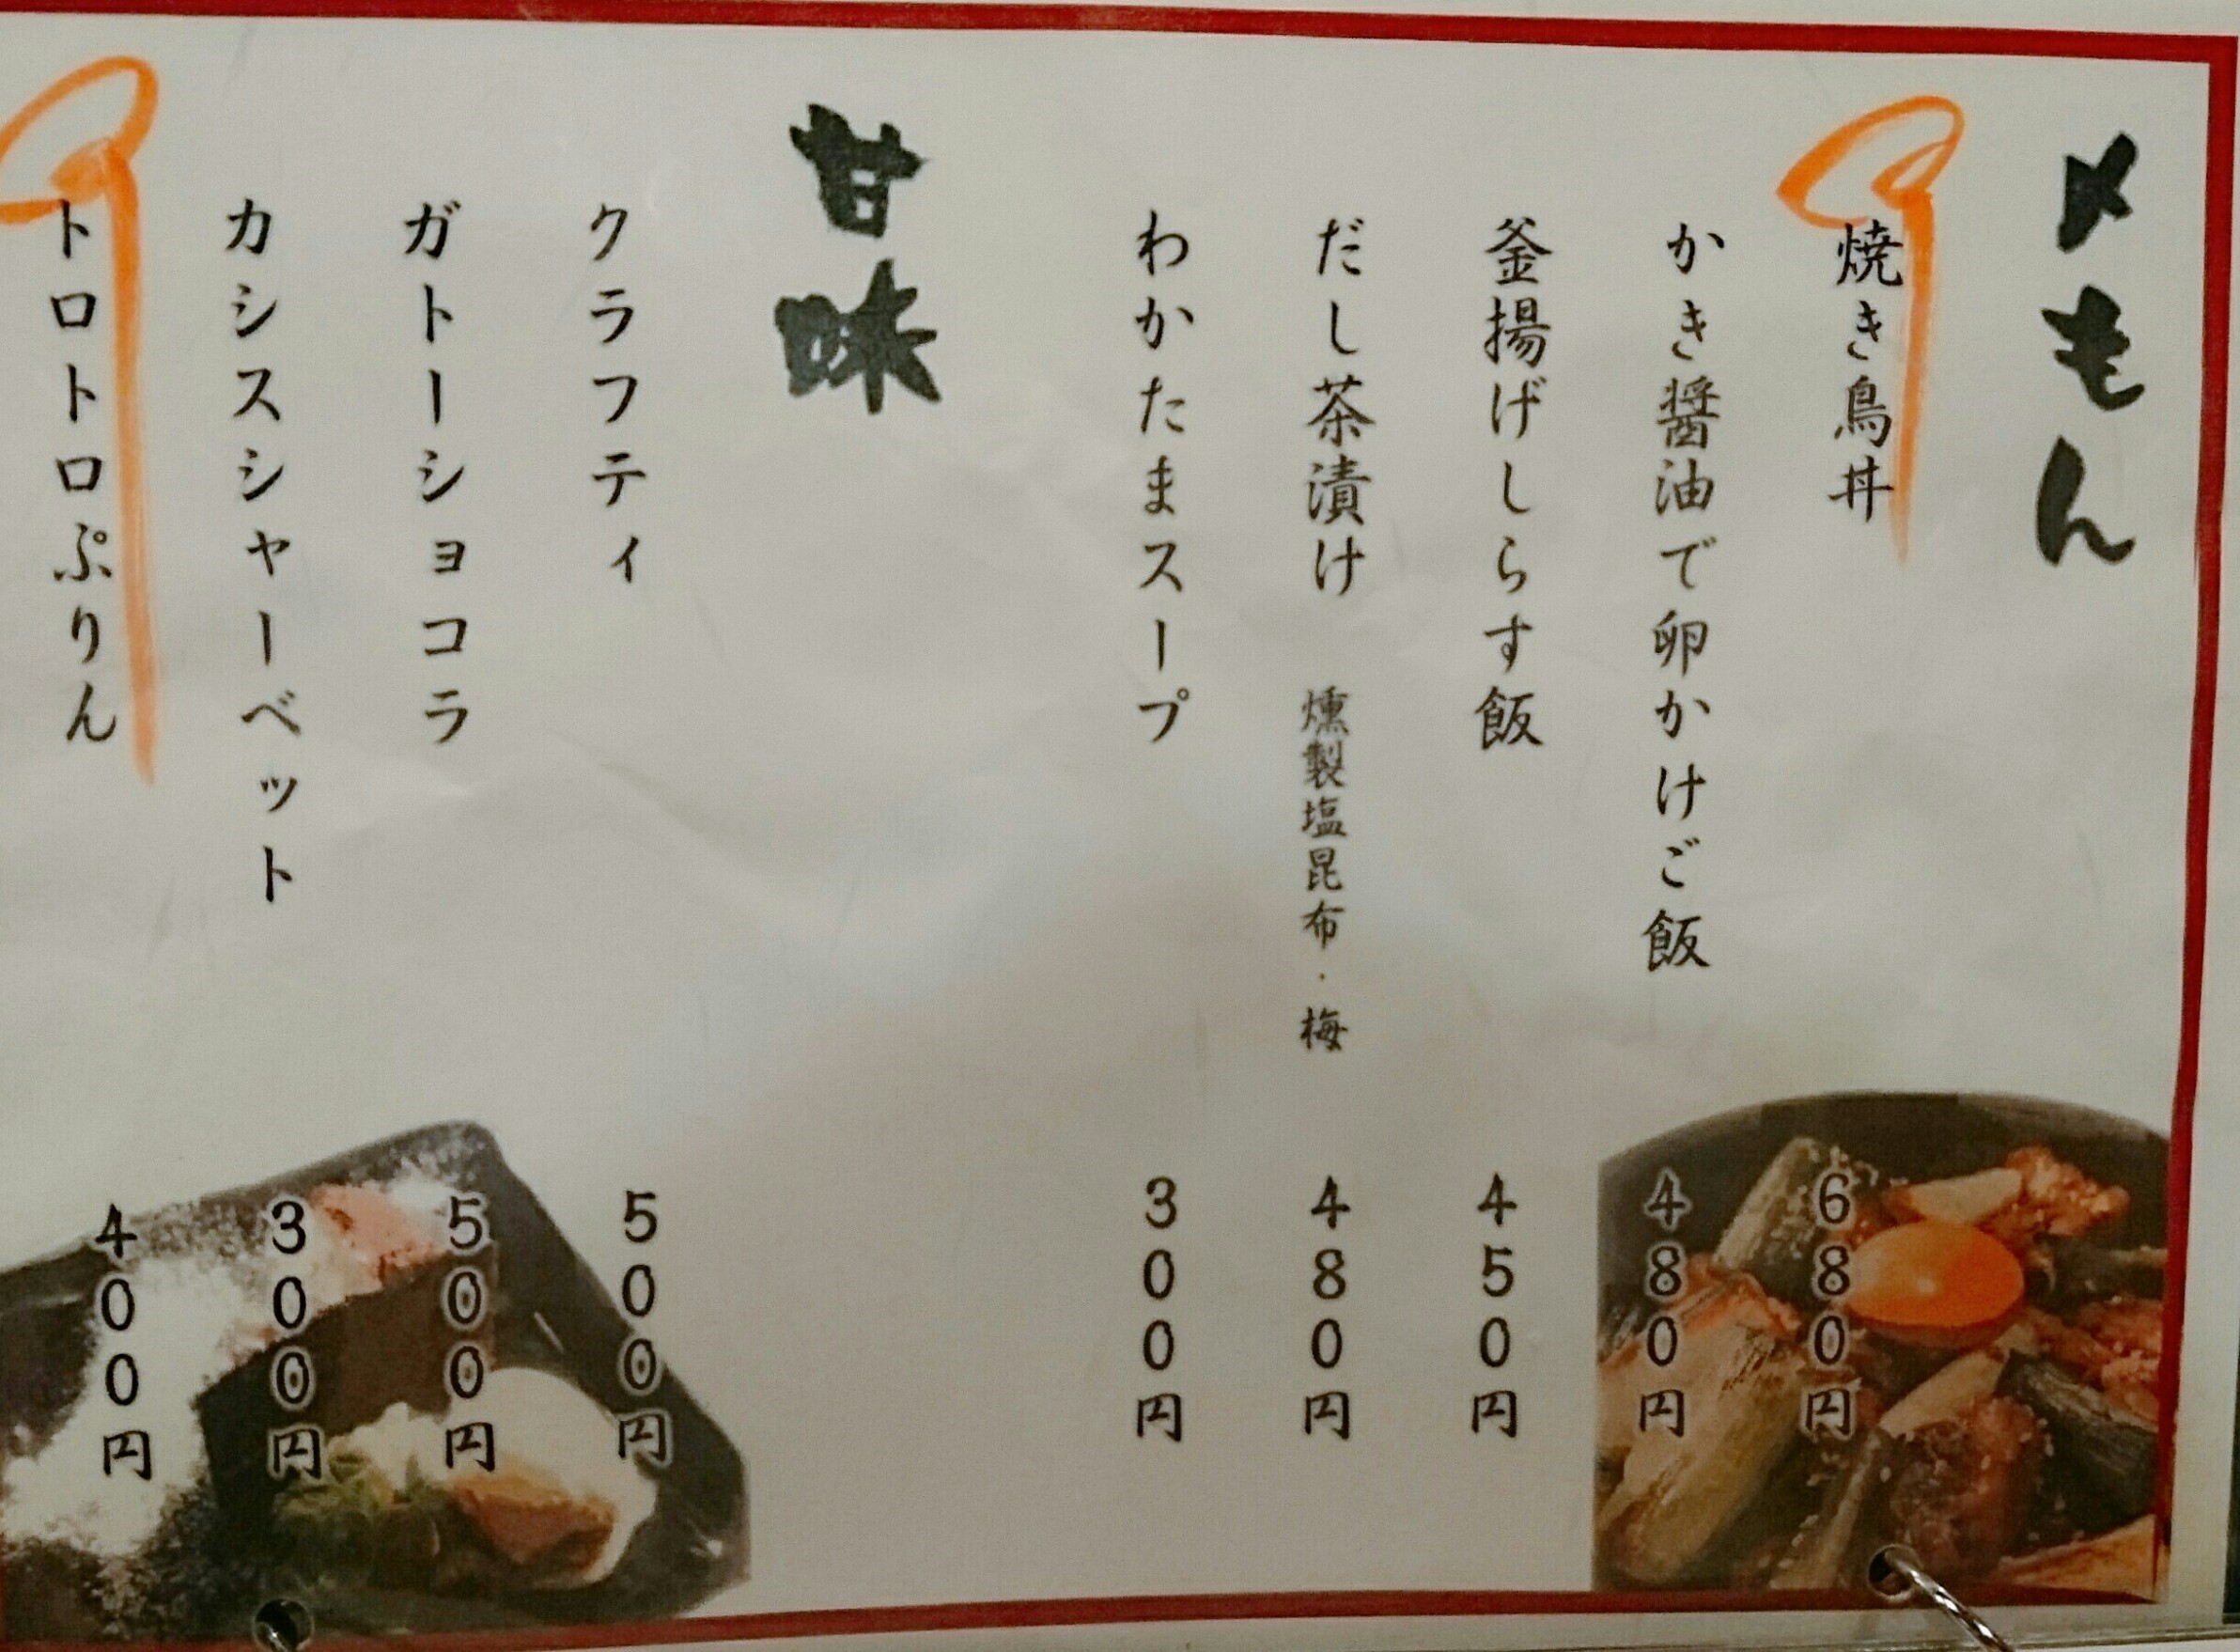 〆もん
焼き鳥丼 680円
かき醤油で卵かけご飯 480円
釜揚げしらす飯 450円
だし茶漬け 燻製塩昆布・梅 480円
わかたまスープ 300円
甘味
クラフティ 500円
ガトーショコラ 500円
カシスシャーベット 300円
トロトロぷりん 400円